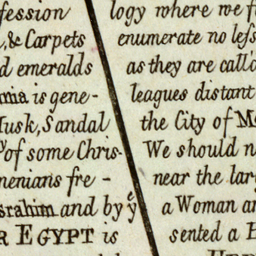 fession
, & Carpets
d emeralds
mia is gene-
Musk, Sandal
of some Chris-
menians fre-
srahim and by yͤ
R EGYPT is
logy where we f
enumerate no less
as they are call'd
leagues distant
the City of M
We should n
near the lar
a Woman an
sented a B